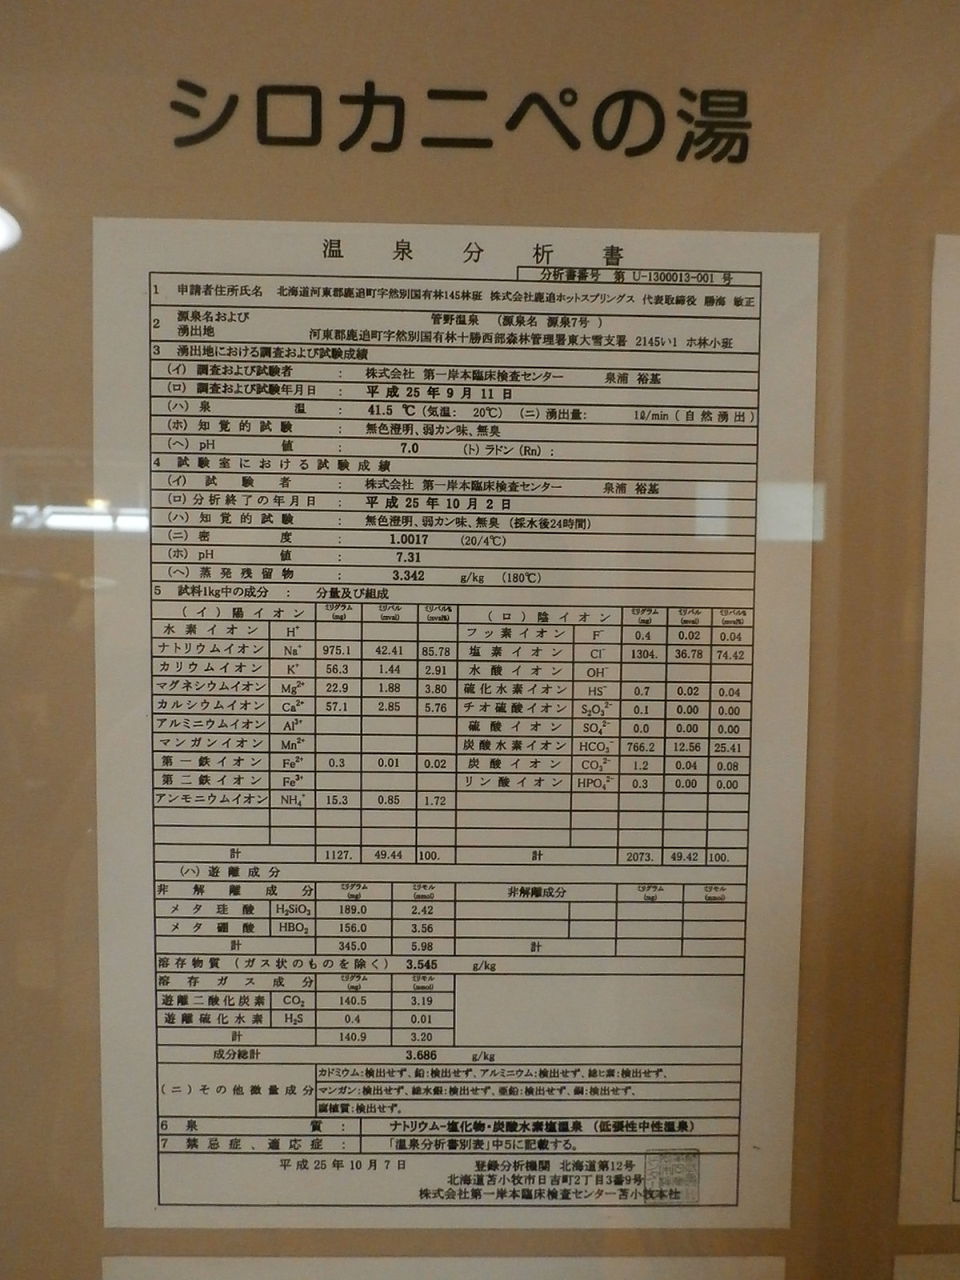 シロカニペの湯
温泉分析書
分析書番号 第 U-1300013-001 号
1 申請者住所氏名 北海道河東郡鹿追町字然別国有林145林班 株式会社鹿追ホットスプリングス 代表取締役 勝海 敏正
2 源泉名および湧出地 管野温泉 (源泉名 源泉7号)
河東郡鹿追町字然別国有林十勝西部森林管理署東大雪支署 2145い1 ホ林小班
3 湧出地における調査および試験成績
(イ) 調査および試験者 : 株式会社 第一岸本臨床検査センター 泉浦 裕基
(ロ) 調査および試験年月日 : 平成 25 年 9 月 11 日
(ハ) 泉温 : 41.5 ℃ (気温: 20℃) (ニ) 湧出量: 1ℓ/min (自然湧出)
(ホ) 知覚的試験 : 無色澄明、弱カン味、無臭
(ヘ) pH値 : 7.0 (ト) ラドン (Rn) :
4 試験室における試験成績
(イ) 試験者 : 株式会社 第一岸本臨床検査センター 泉浦 裕基
(ロ) 分析終了の年月日 : 平成 25 年 10 月 2 日
(ハ) 知覚的試験 : 無色澄明、弱カン味、無臭 (採水後24時間)
(ニ) 密度 : 1.0017 (20/4℃)
(ホ) pH値 : 7.31
(ヘ) 蒸発残留物 : 3.342 g/kg (180℃)
5 試料1kg中の成分 : 分量及び組成
(イ) 陽イオン ミリグラム(mg) ミリバル(mval) ミリバル%(mval%) (ロ) 陰イオン ミリグラム(mg) ミリバル(mval) ミリバル%(mval%)
水素イオン H⁺ フッ素イオン F⁻ 0.4 0.02 0.04
ナトリウムイオン Na⁺ 975.1 42.41 85.78 塩素イオン Cl⁻ 1304. 36.78 74.42
カリウムイオン K⁺ 56.3 1.44 2.91 水酸イオン OH⁻
マグネシウムイオン Mg²⁺ 22.9 1.88 3.80 硫化水素イオン HS⁻ 0.7 0.02 0.04
カルシウムイオン Ca²⁺ 57.1 2.85 5.76 チオ硫酸イオン S₂O₃²⁻ 0.1 0.00 0.00
アルミニウムイオン Al³⁺ 硫酸イオン SO₄²⁻ 0.0 0.00 0.00
マンガンイオン Mn²⁺ 炭酸水素イオン HCO₃⁻ 766.2 12.56 25.41
第一鉄イオン Fe²⁺ 0.3 0.01 0.02 炭酸イオン CO₃²⁻ 1.2 0.04 0.08
第二鉄イオン Fe³⁺ リン酸イオン HPO₄²⁻ 0.3 0.00 0.00
アンモニウムイオン NH₄⁺ 15.3 0.85 1.72
計 1127. 49.44 100. 計 2073. 49.42 100.
(ハ) 遊離成分
非解離成分 ミリグラム(mg) ミリモル(mmol) 非解離成分 ミリグラム(mg) ミリモル(mmol)
メタ珪酸 H₂SiO₃ 189.0 2.42
メタ硼酸 HBO₂ 156.0 3.56
計 345.0 5.98 計
溶存物質 (ガス状のものを除く) 3.545 g/kg
溶存ガス成分 ミリグラム(mg) ミリモル(mmol)
遊離二酸化炭素 CO₂ 140.5 3.19
遊離硫化水素 H₂S 0.4 0.01
計 140.9 3.20
成分総計 3.686 g/kg
(ニ) その他微量成分 カドミウム:検出せず、鉛:検出せず、アルミニウム:検出せず、総ヒ素:検出せず、
マンガン:検出せず、総水銀:検出せず、亜鉛:検出せず、銅:検出せず、
腐植質:検出せず。
6 泉質 : ナトリウム-塩化物・炭酸水素塩温泉 (低張性中性温泉)
7 禁忌症、適応症 : 「温泉分析書別表」中5に記載する。
平成 25 年 10 月 7 日 登録分析機関 北海道第12号
北海道苫小牧市日吉町2丁目3番9号
株式会社第一岸本臨床検査センター苫小牧本社